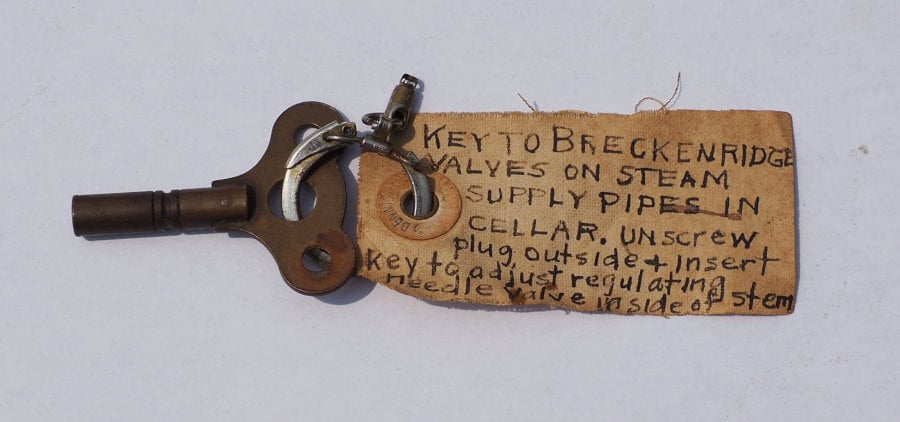 KEY TO BRECKENRIDGE
VALVES ON STEAM
SUPPLY PIPES IN
CELLAR. UNSCREW
plug outside + insert
key to adjust regulating
needle valve inside of stem